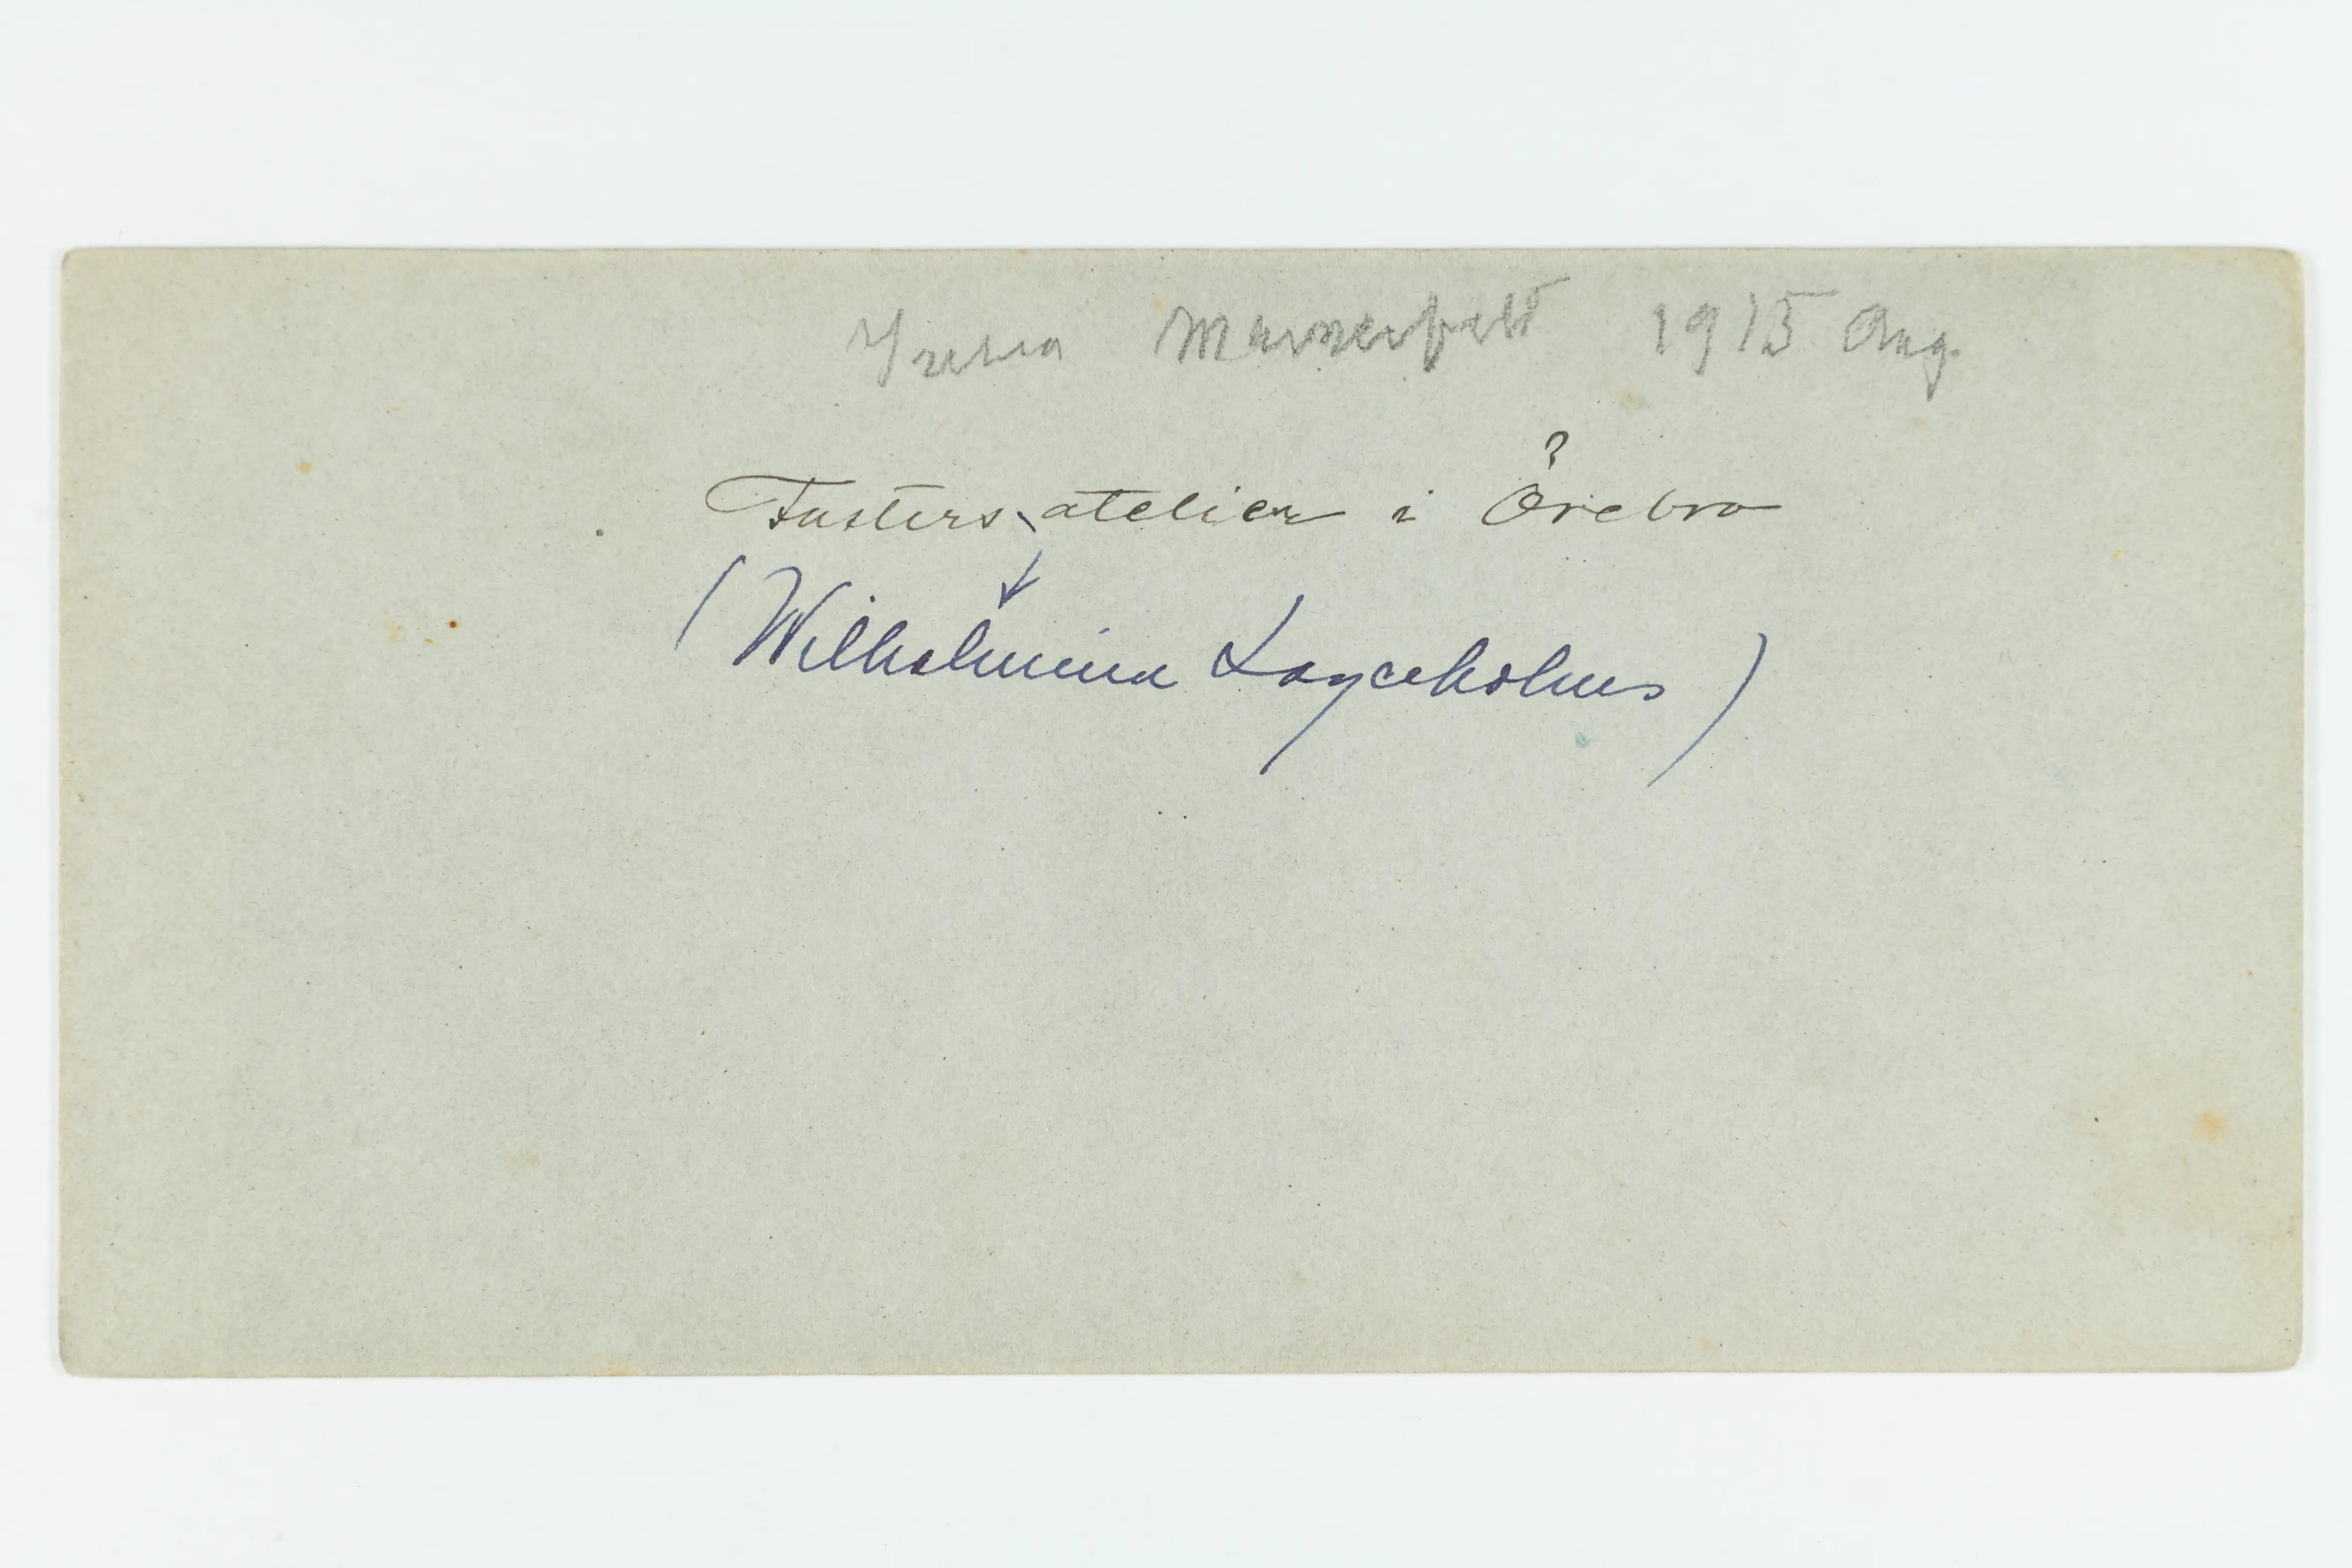 Mannerfelt 1915 Aug.
?
Fasters atelier i Örebro
(Wilhelmina Lagerholms)